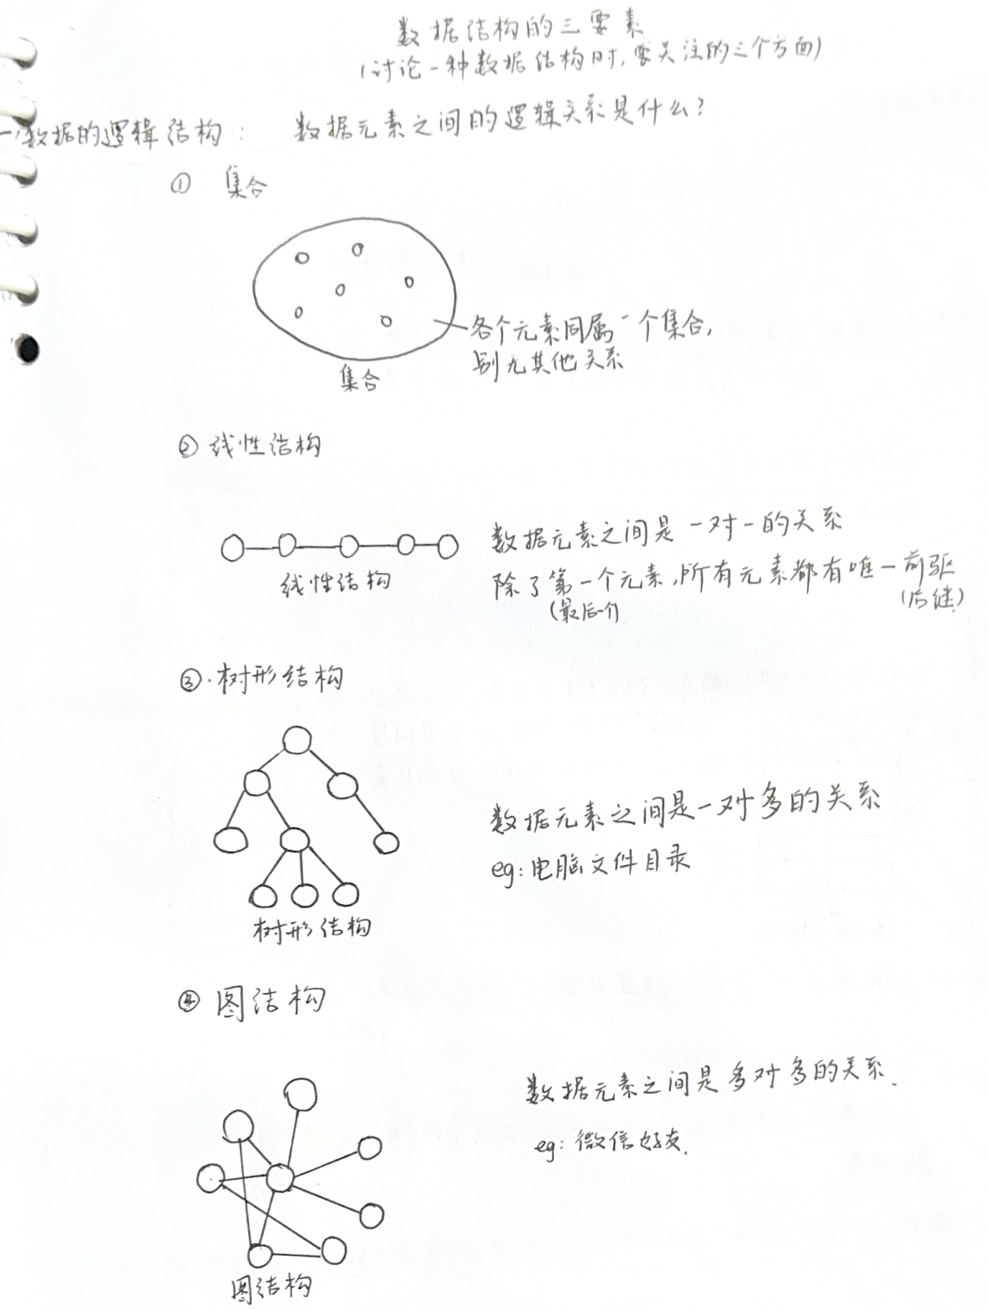 数据结构的三要素
(讨论一种数据结构时,要关注的三个方面)
一、数据的逻辑结构: 数据元素之间的逻辑关系是什么?
① 集合
各个元素同属一个集合,
别无其他关系
集合
② 线性结构
数据元素之间是一对一的关系
除了第一个元素,所有元素都有唯一前驱
(最后一个) (后继)
线性结构
③.树形结构
数据元素之间是一对多的关系
eg:电脑文件目录
树形结构
④ 图结构
数据元素之间是多对多的关系.
eg:微信好友.
图结构